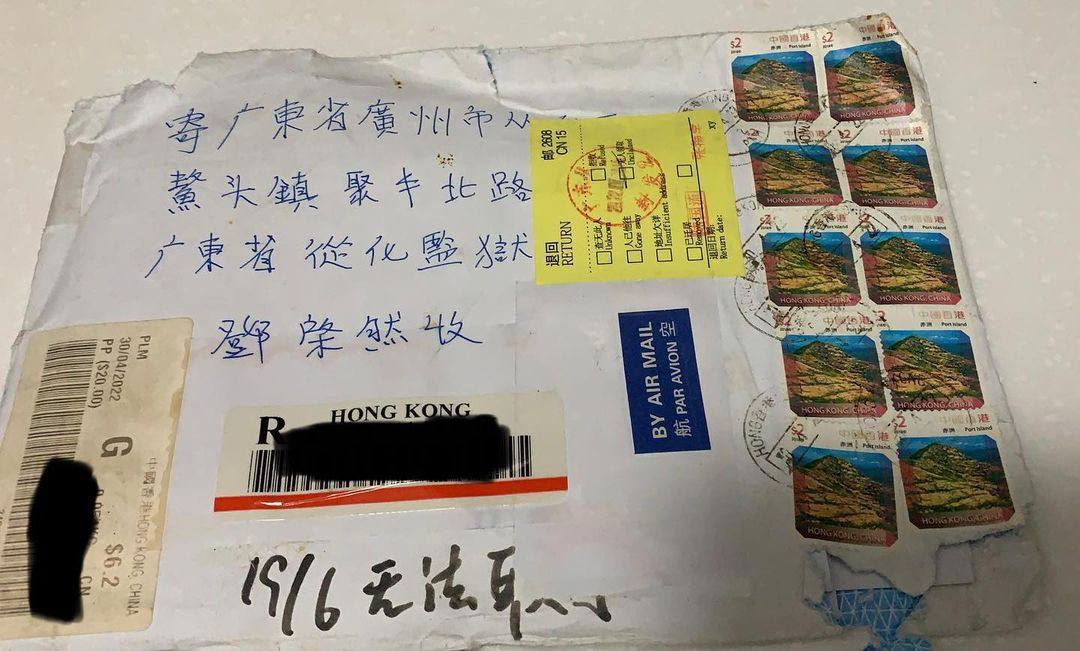 寄广東省廣州市从
鰲头鎮聚丰北路
广東省從化監獄
鄧棨然收
退回
RETURN
邮 2608
CN 15
查无此人
Unknown
人已他往
Gone away
地址欠详
Insufficient address
已迁居
Removed
退回日期:
Return date:
拒收
Refused
无人领取
Unclaimed
xy
BY AIR MAIL
航 PAR AVION 空
R
HONG KONG
PLM
30/04/2022
PP ($20.00)
G
中國香港HONG KONG, CHINA
$6.2
CN
19/6 无法
$2
中國香港
赤洲 Port Island
$2
中國香港
赤洲 Port Island
$2
HONG KONG, CHINA
$2
HONG KONG, CHINA
$2
HONG KONG, CHINA
$2
HONG KONG, CHINA
$2
赤洲 Port Island
HONG KONG, CHINA
$2
赤洲 Port Island
HONG KONG, CHINA
$2
中國香港
赤洲 Port Island
HONG KONG, CHINA
$2
中國香港
赤洲 Port Island
HONG KONG, CHINA